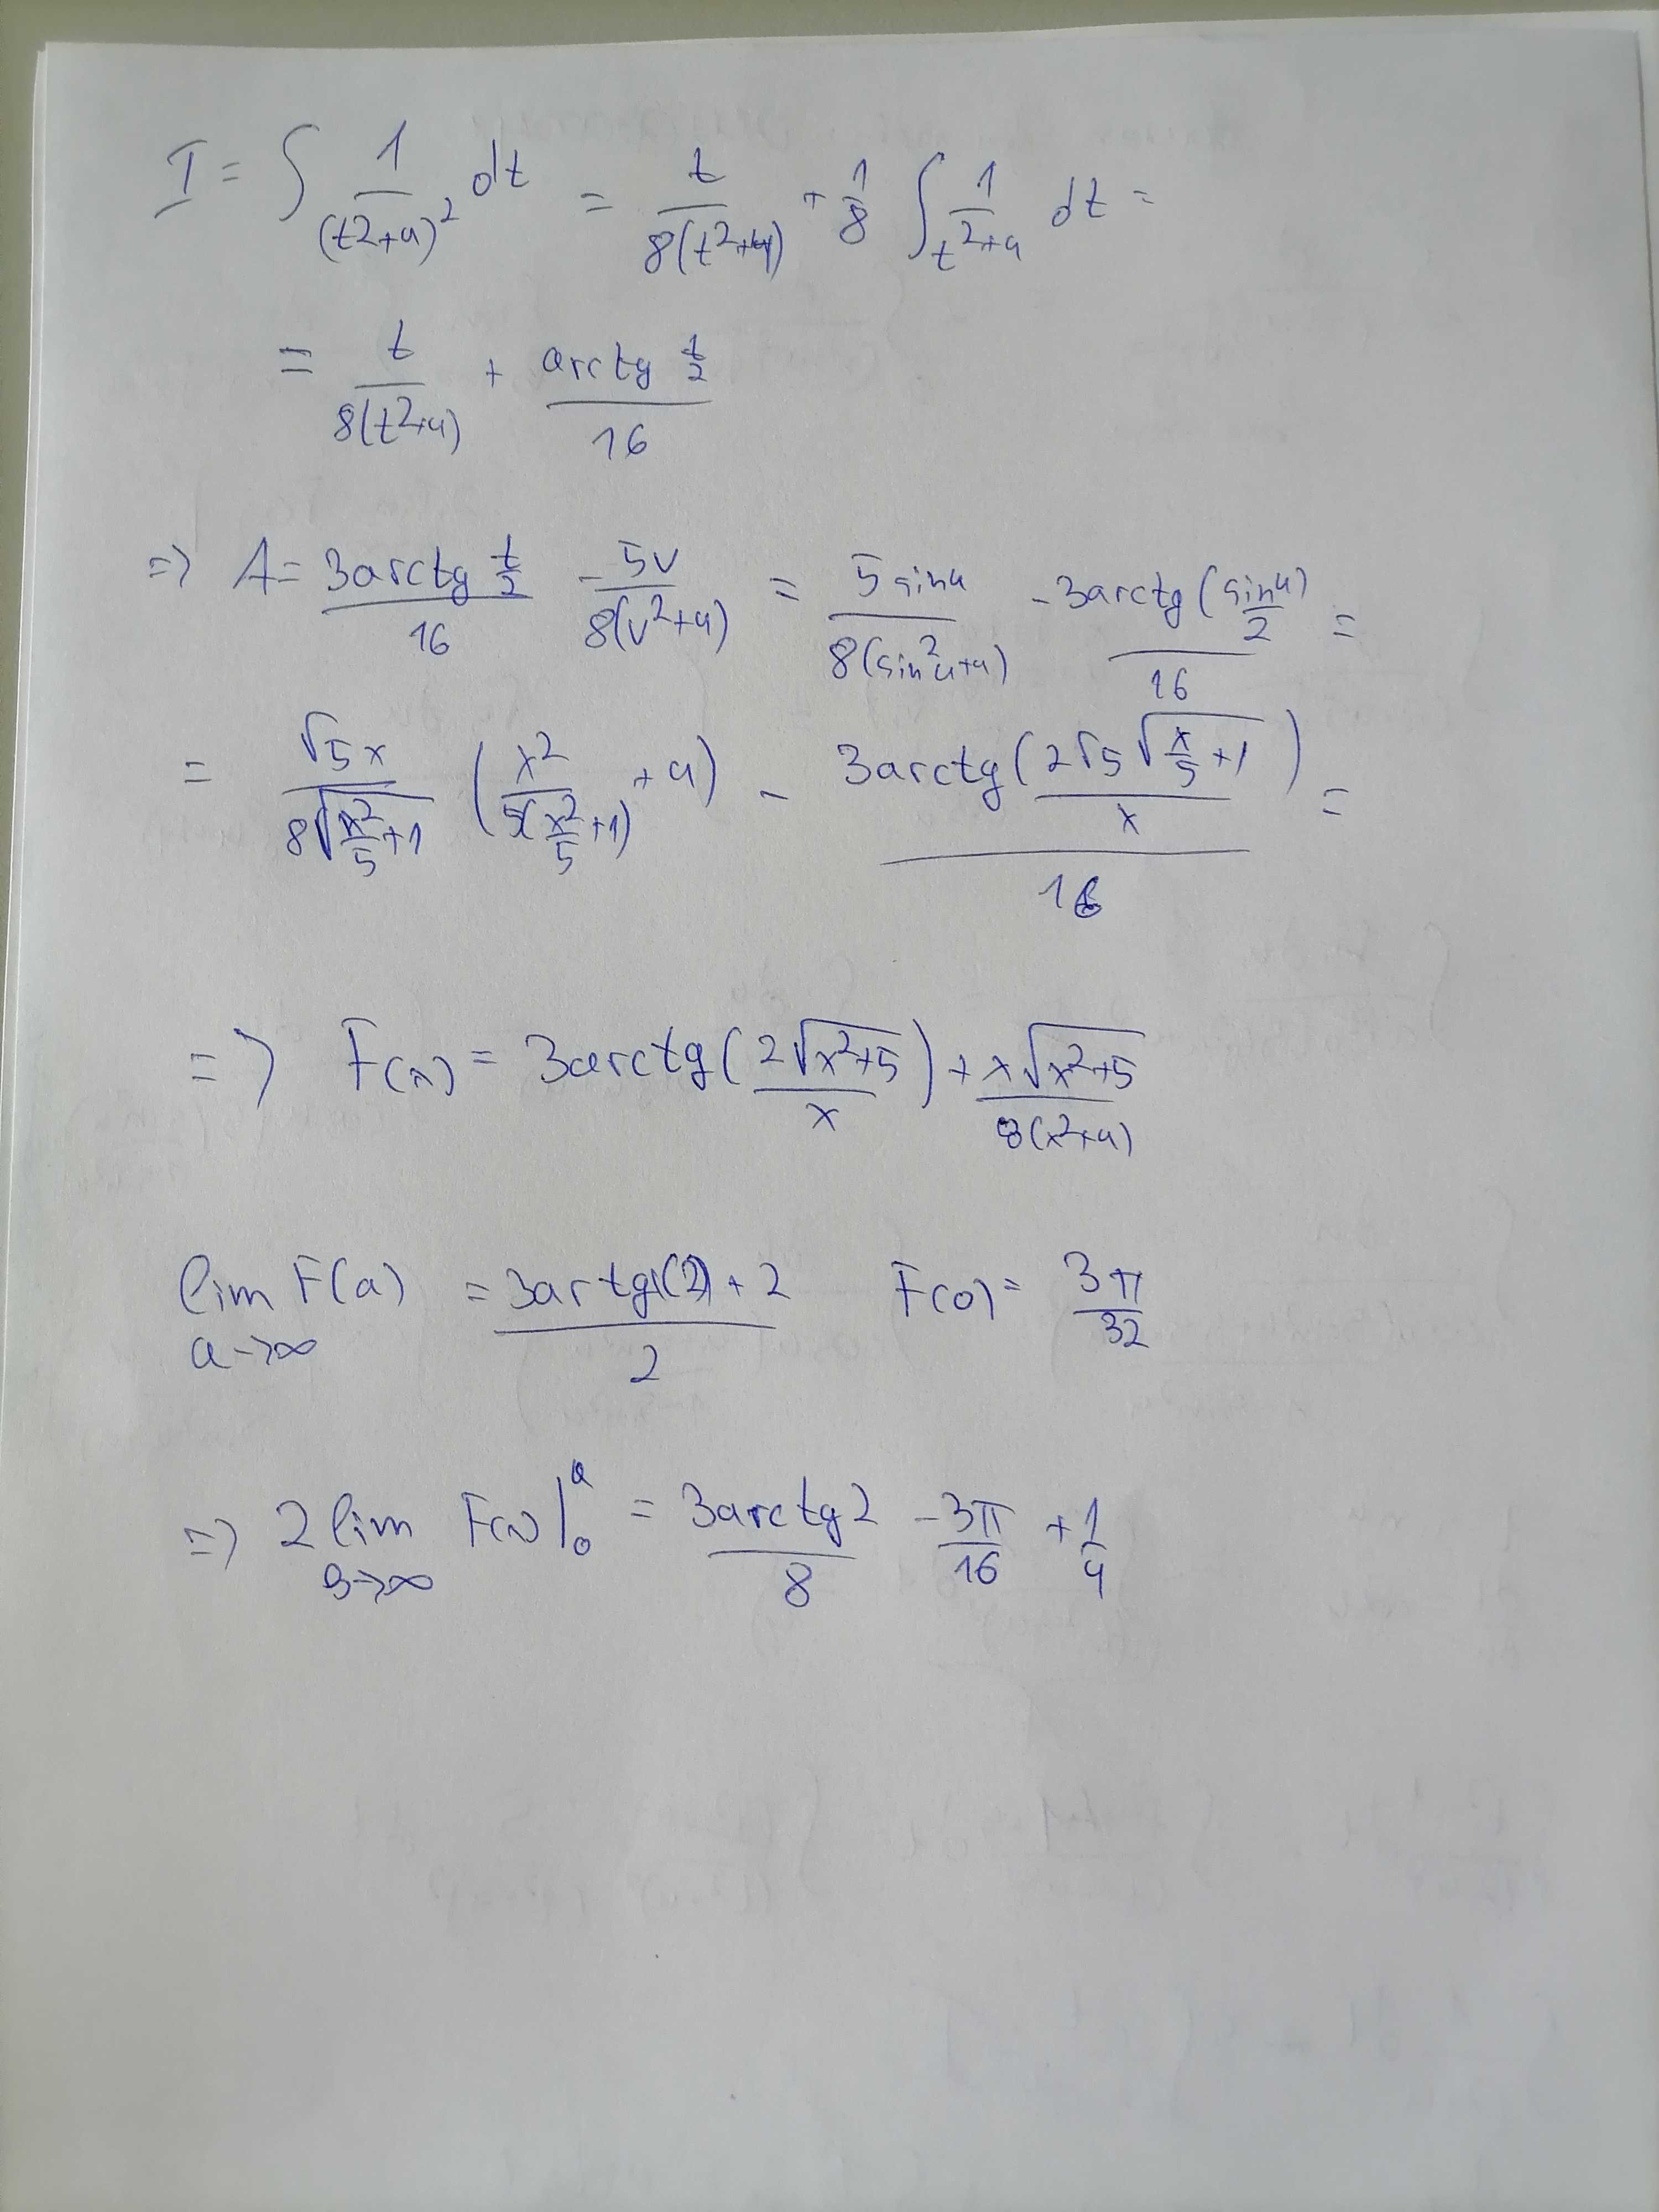 I = ∫ 1/(t2+4)^2 dt = t/8(t^2+4) + 1/8 ∫ 1/t^2+4 dt =
= t/8(t^2+4) + arctg t/2 /16
=> A = 3arctg t/2 /16 - 5v/8(v^2+4) = 5 sin u/8(sin^2 u+4) - 3arctg(sin u/2)/16 =
= √5x/8√(x^2/5+1) (x^2/5(x^2/5+1) + 4) - 3arctg(2√5√(x/5+1)/x)/16 =
=> F(x) = 3arctg(2√(x^2+5)/x) + x√(x^2+5)/8(x^2+4)
lim a->∞ F(a) = 3artg(2)+2/2 F(0) = 3π/32
=> 2 lim a->∞ F(x)|_0^a = 3arctg2/8 - 3π/16 + 1/4